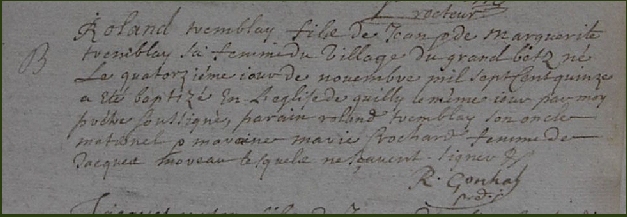 recteur
B
Roland tremblay fils de Jean & de marguerite
tremblay sa femme du Village du grand betz né
Le quatorziéme iour de novembre mil sept cent quinze
a eté baptizé en L'eglise de quilly le même iour par moy
prêtre soussigné, parain roland tremblay son oncle
maternel & maraine marie brochard femme de
Jacques moreau lesquels ne sçavent signer
R. Gouhal